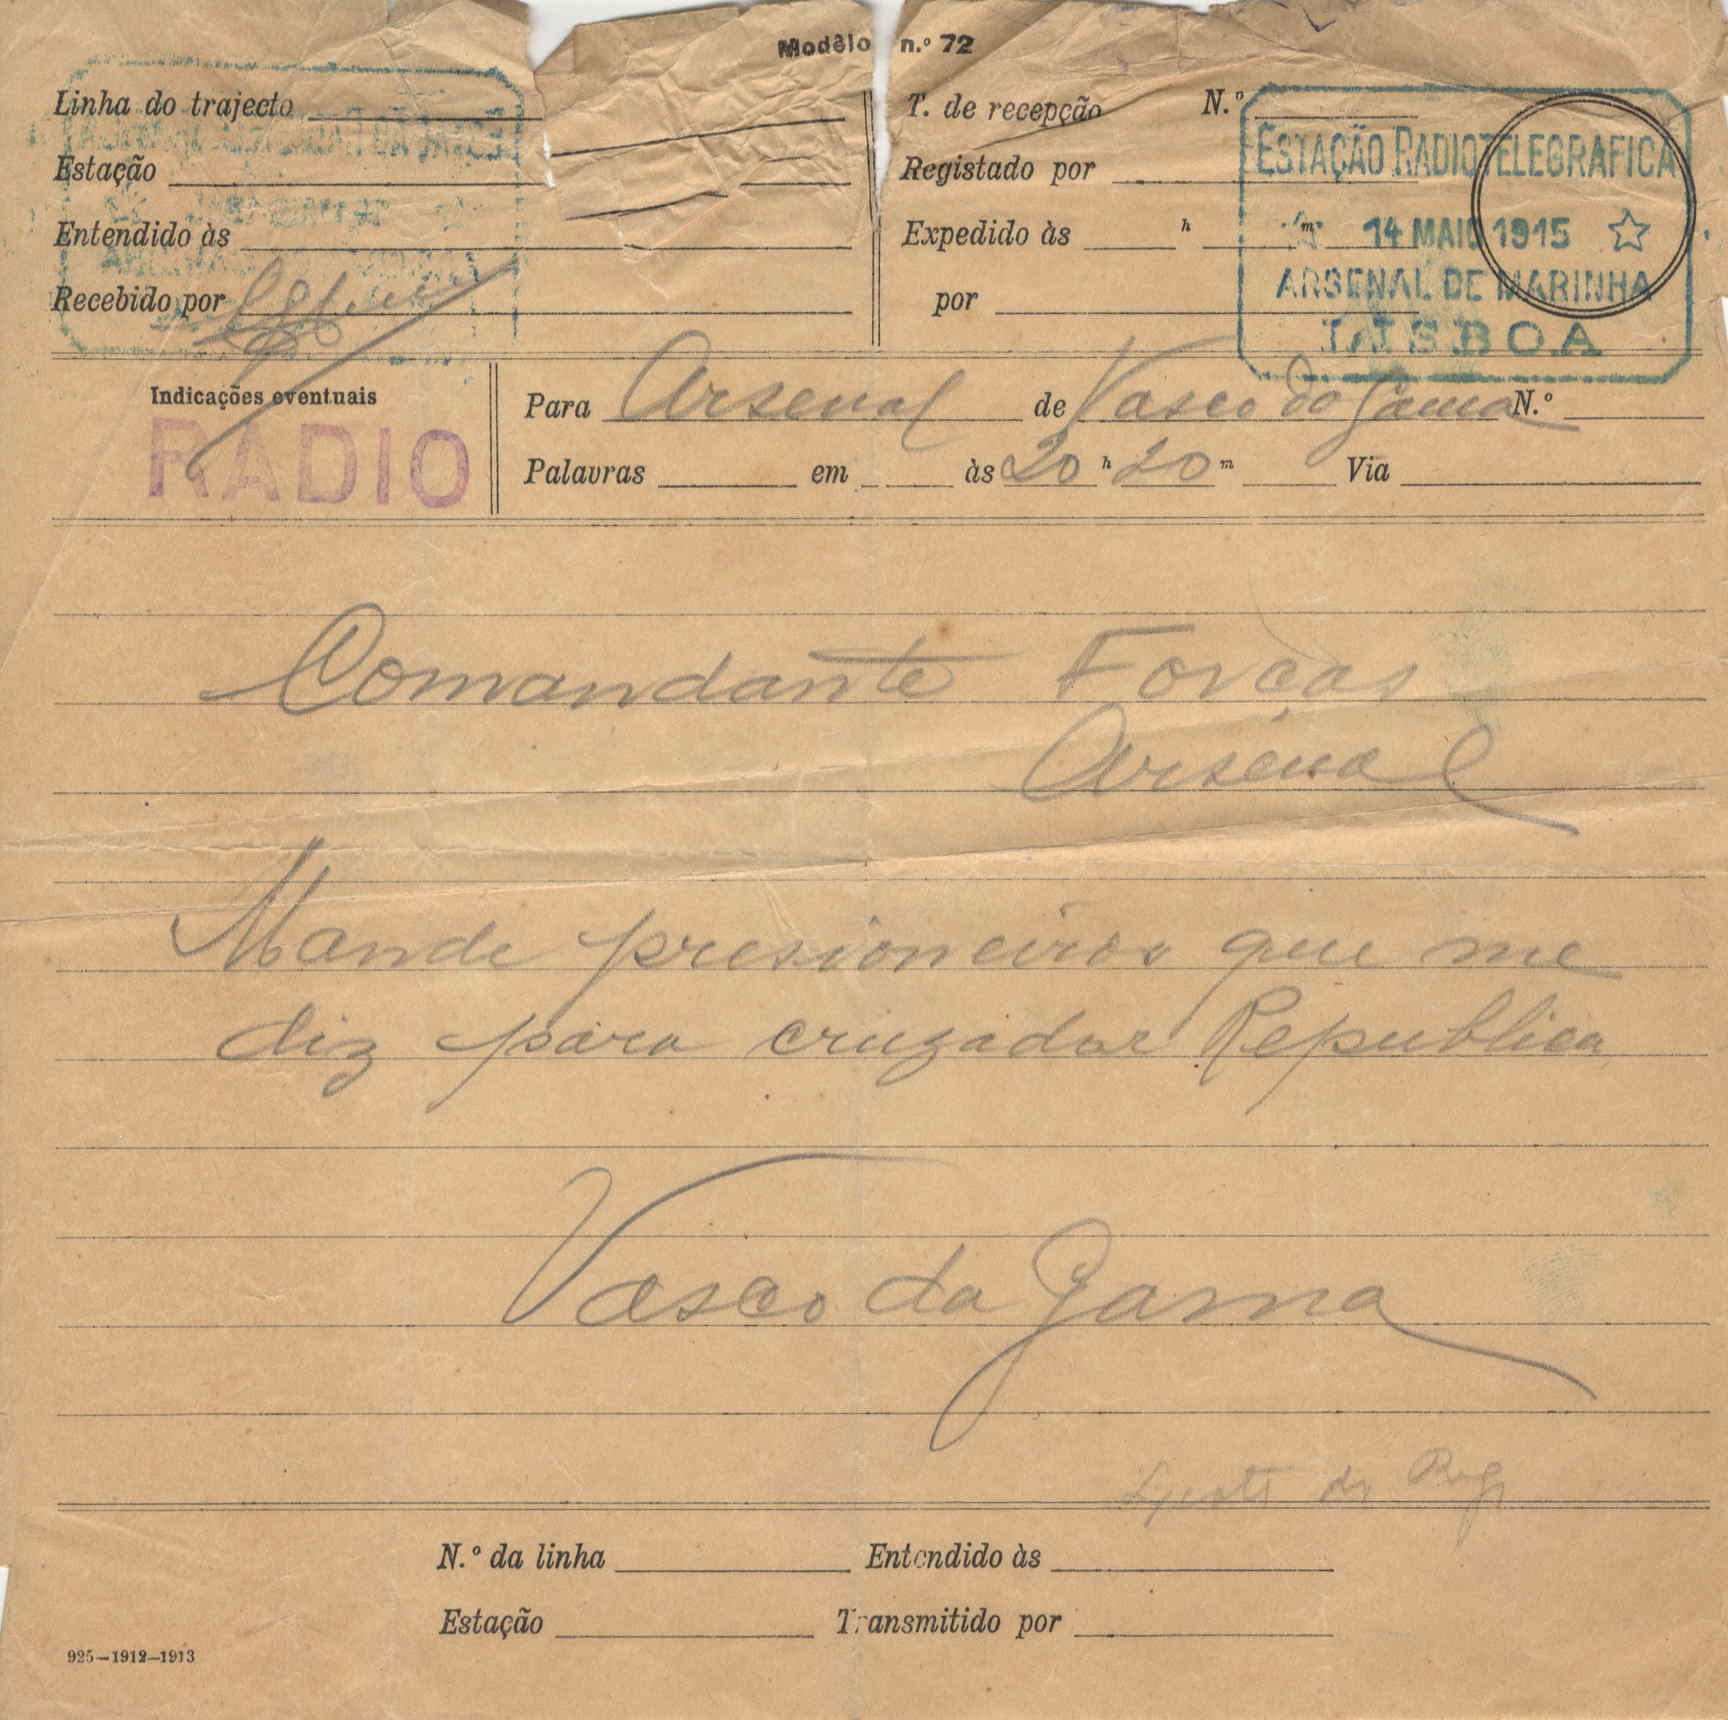 Modêlo n.º 72
Linha do trajecto
Estação
Entendido às
Recebido por
T. de recepção N.º
Registado por
Expedido às h m
por
ESTAÇÃO RADIOTELEGRAFICA
14 MAIO 1915
ARSENAL DE MARINHA
LISBOA
Indicações eventuais
RADIO
Para Arsenal de Vasco da Gama N.º
Palavras em às 20 h 20 m Via
Comandante Forças
Arsenal
Mande presioneiros que me
diz para cruzador Republica
Vasco da Gama
N.º da linha Entendido às
Estação Transmitido por
925—1912—1913